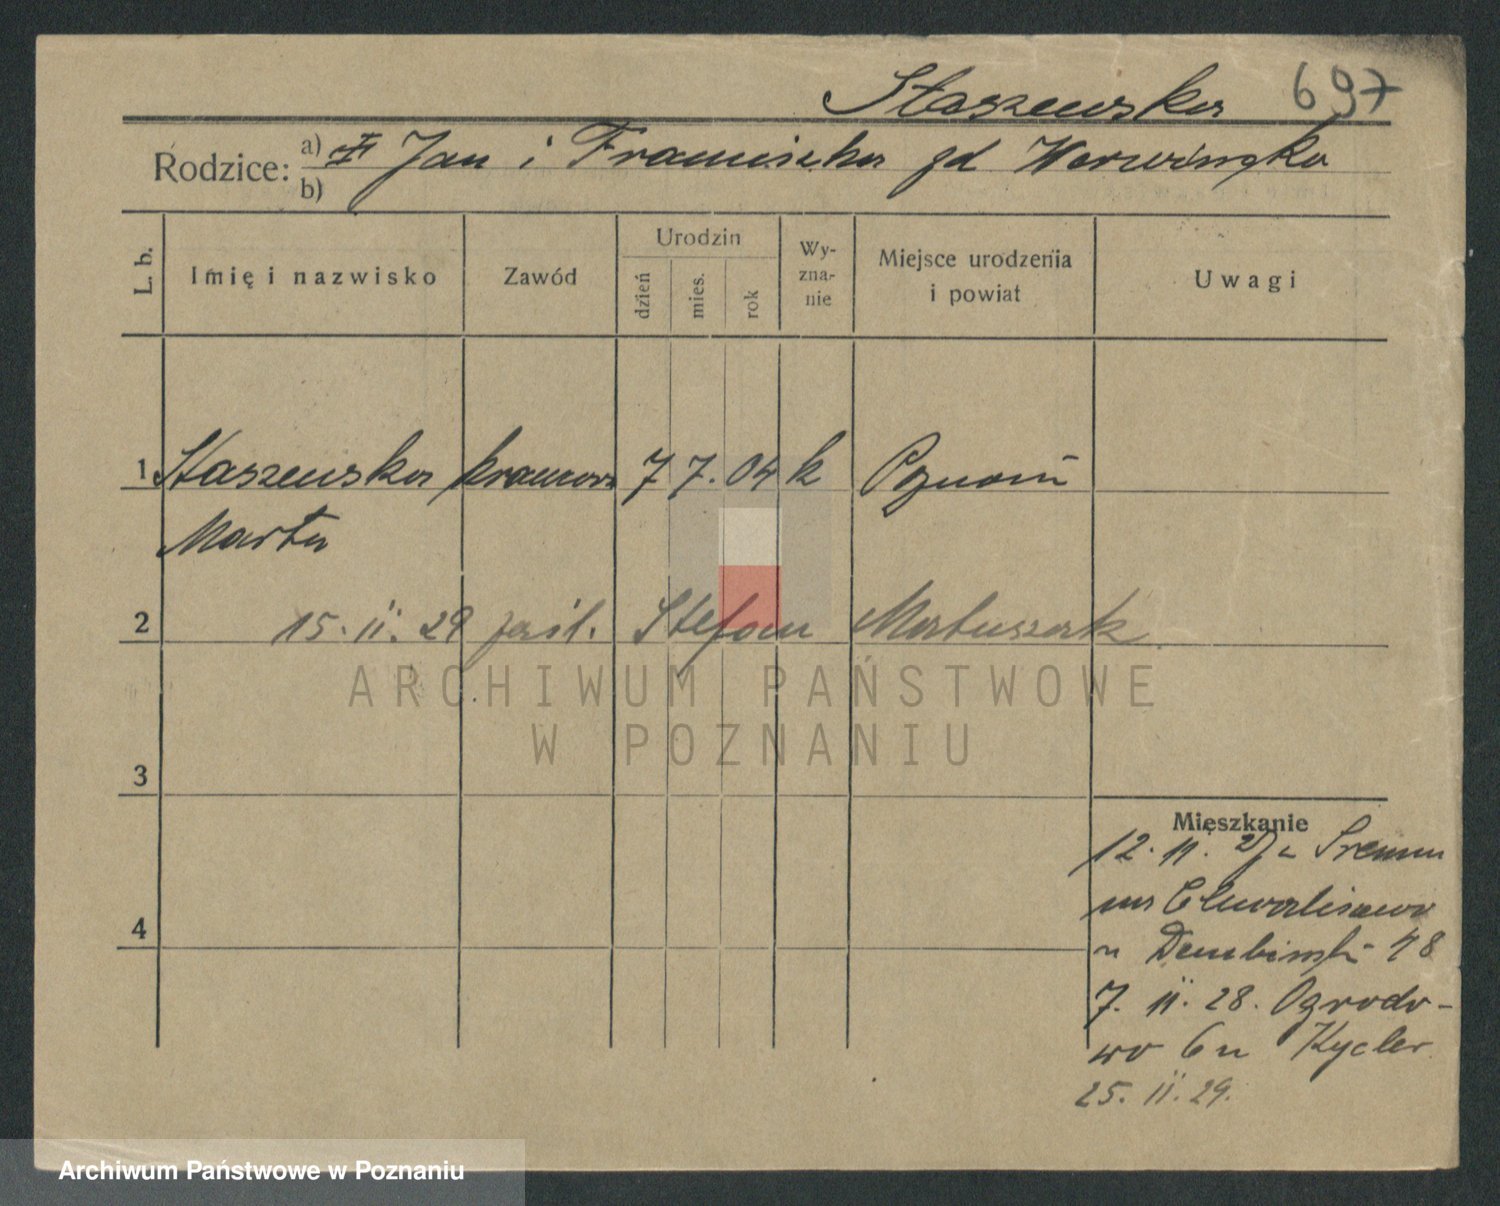 Staszewska 697
Rodzice: a) Jan i Franciszka zd Warwińska
b)
L. b. Imię i nazwisko Zawód Urodzin dzień mies. rok Wyznanie Miejsce urodzenia i powiat Uwagi
1 Staszewska krawcowa 7 7. 04 k Poznań
Marta
2 15. II. 29 zaśl. Stefan Matuszak
ARCHIWUM PAŃSTWOWE
W POZNANIU
3
Mieszkanie
12. 11. 27 z Śremu
na Chwaliszewo
4
u Dembińsk 48
7. II. 28. Ogrodo-
wo 6 u Kycler
25. II. 29.
Archiwum Państwowe w Poznaniu